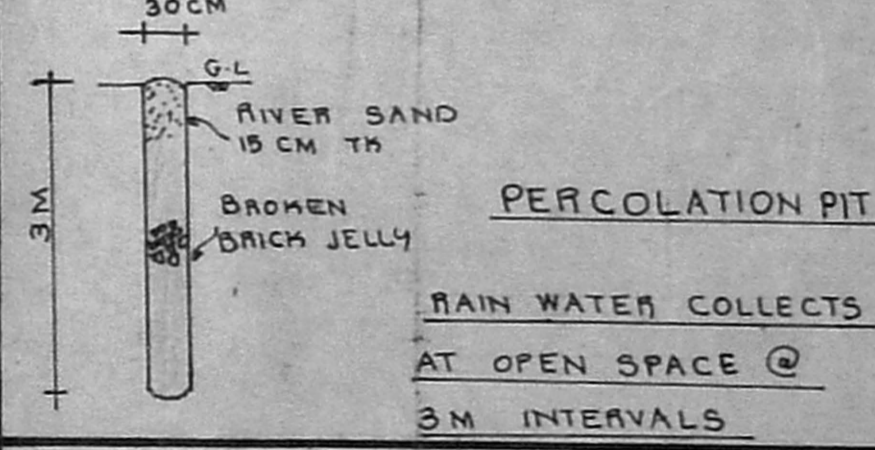 30 CM
G.L
RIVER SAND
15 CM TK
3M
BROKEN
BRICK JELLY
PERCOLATION PIT
RAIN WATER COLLECTS
AT OPEN SPACE @
3M INTERVALS